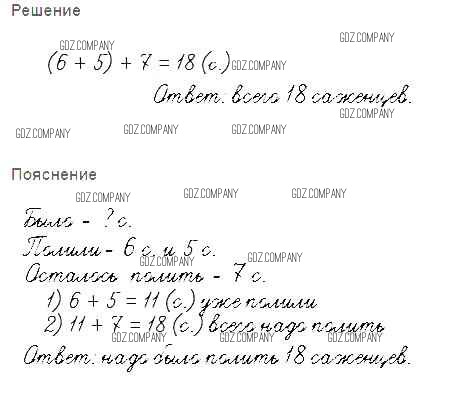 Решение
GDZ.COMPANY
GDZ.COMPANY
(6 + 5) + 7 = 18 (с.) GDZ.COMPANY
Ответ: всего 18 саженцев.
GDZ.COMPANY
GDZ.COMPANY GDZ.COMPANY GDZ.COMPANY
Пояснение
GDZ.COMPANY GDZ.COMPANY GDZ.COMPANY
Было - ? с.
Полили - 6 с. и 5 с.
GDZ.COMPANY GDZ.COMPANY
Осталось полить - 7 с.
1) 6 + 5 = 11 (с.) уже полили
2) 11 + 7 = 18 (с.) всего надо полить
GDZ.COMPANY GDZ.COMPANY GDZ.COMPANY
Ответ: надо было полить 18 саженцев.